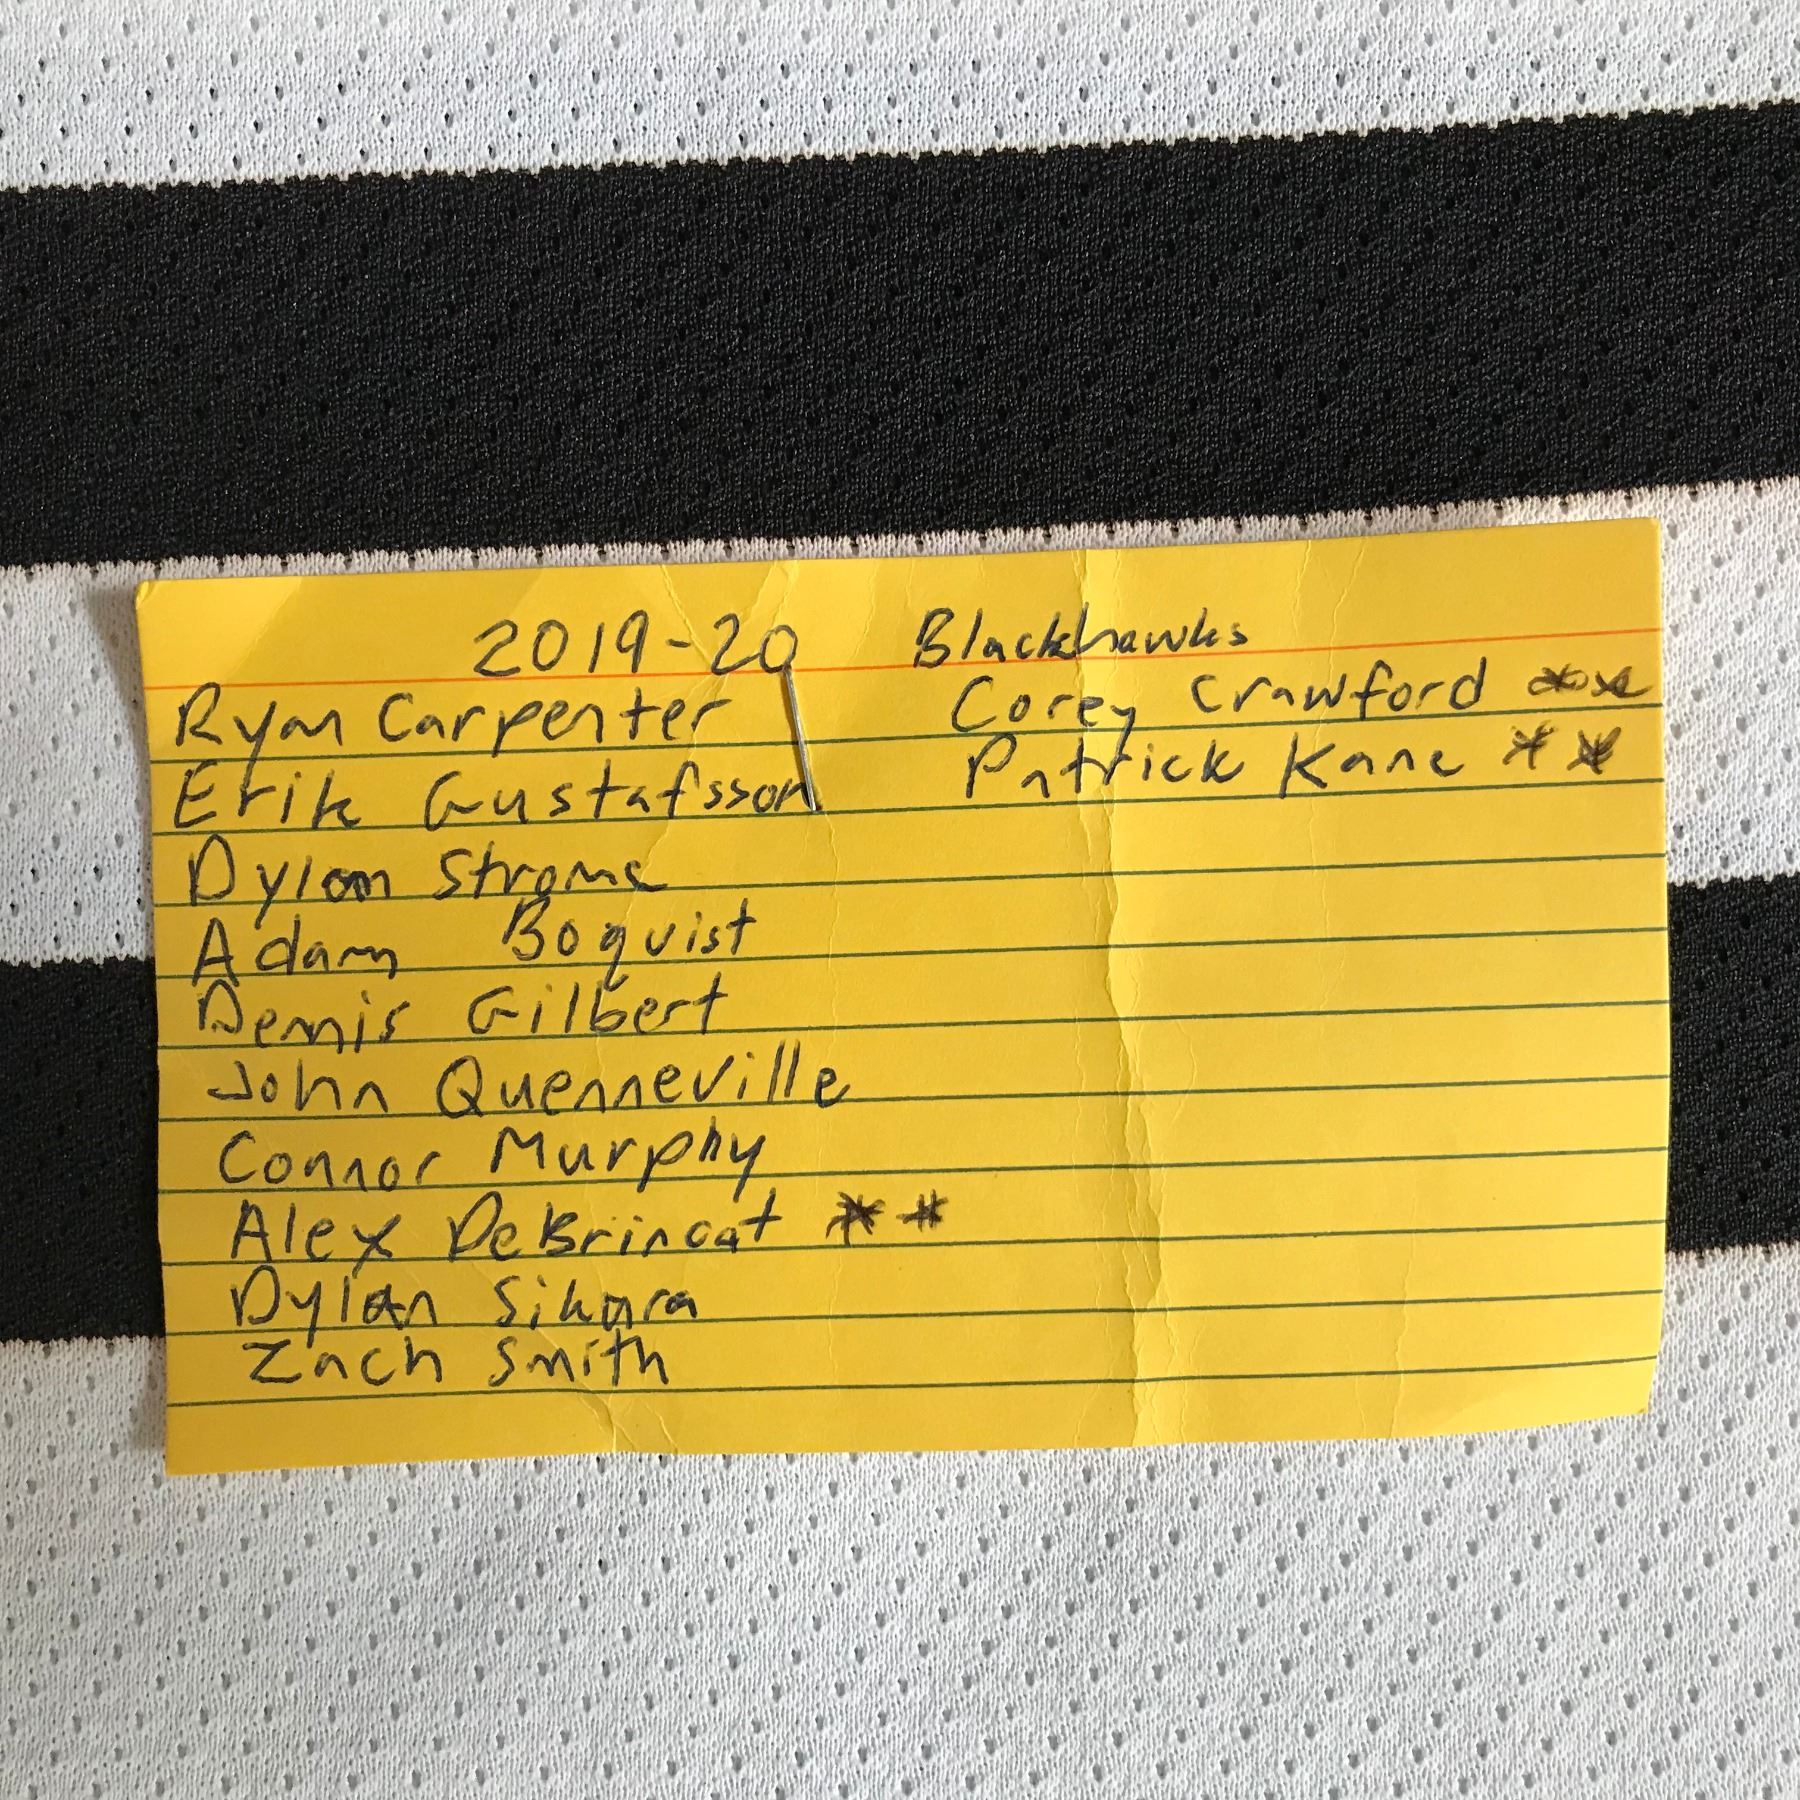 2019-20 Blackhawks
Ryan Carpenter
Erik Gustafsson
Dylan Strome
Adam Boqvist
Dennis Gilbert
John Quenneville
Connor Murphy
Alex DeBrincat **
Dylan Sikura
Zach Smith
Corey Crawford **
Patrick Kane **